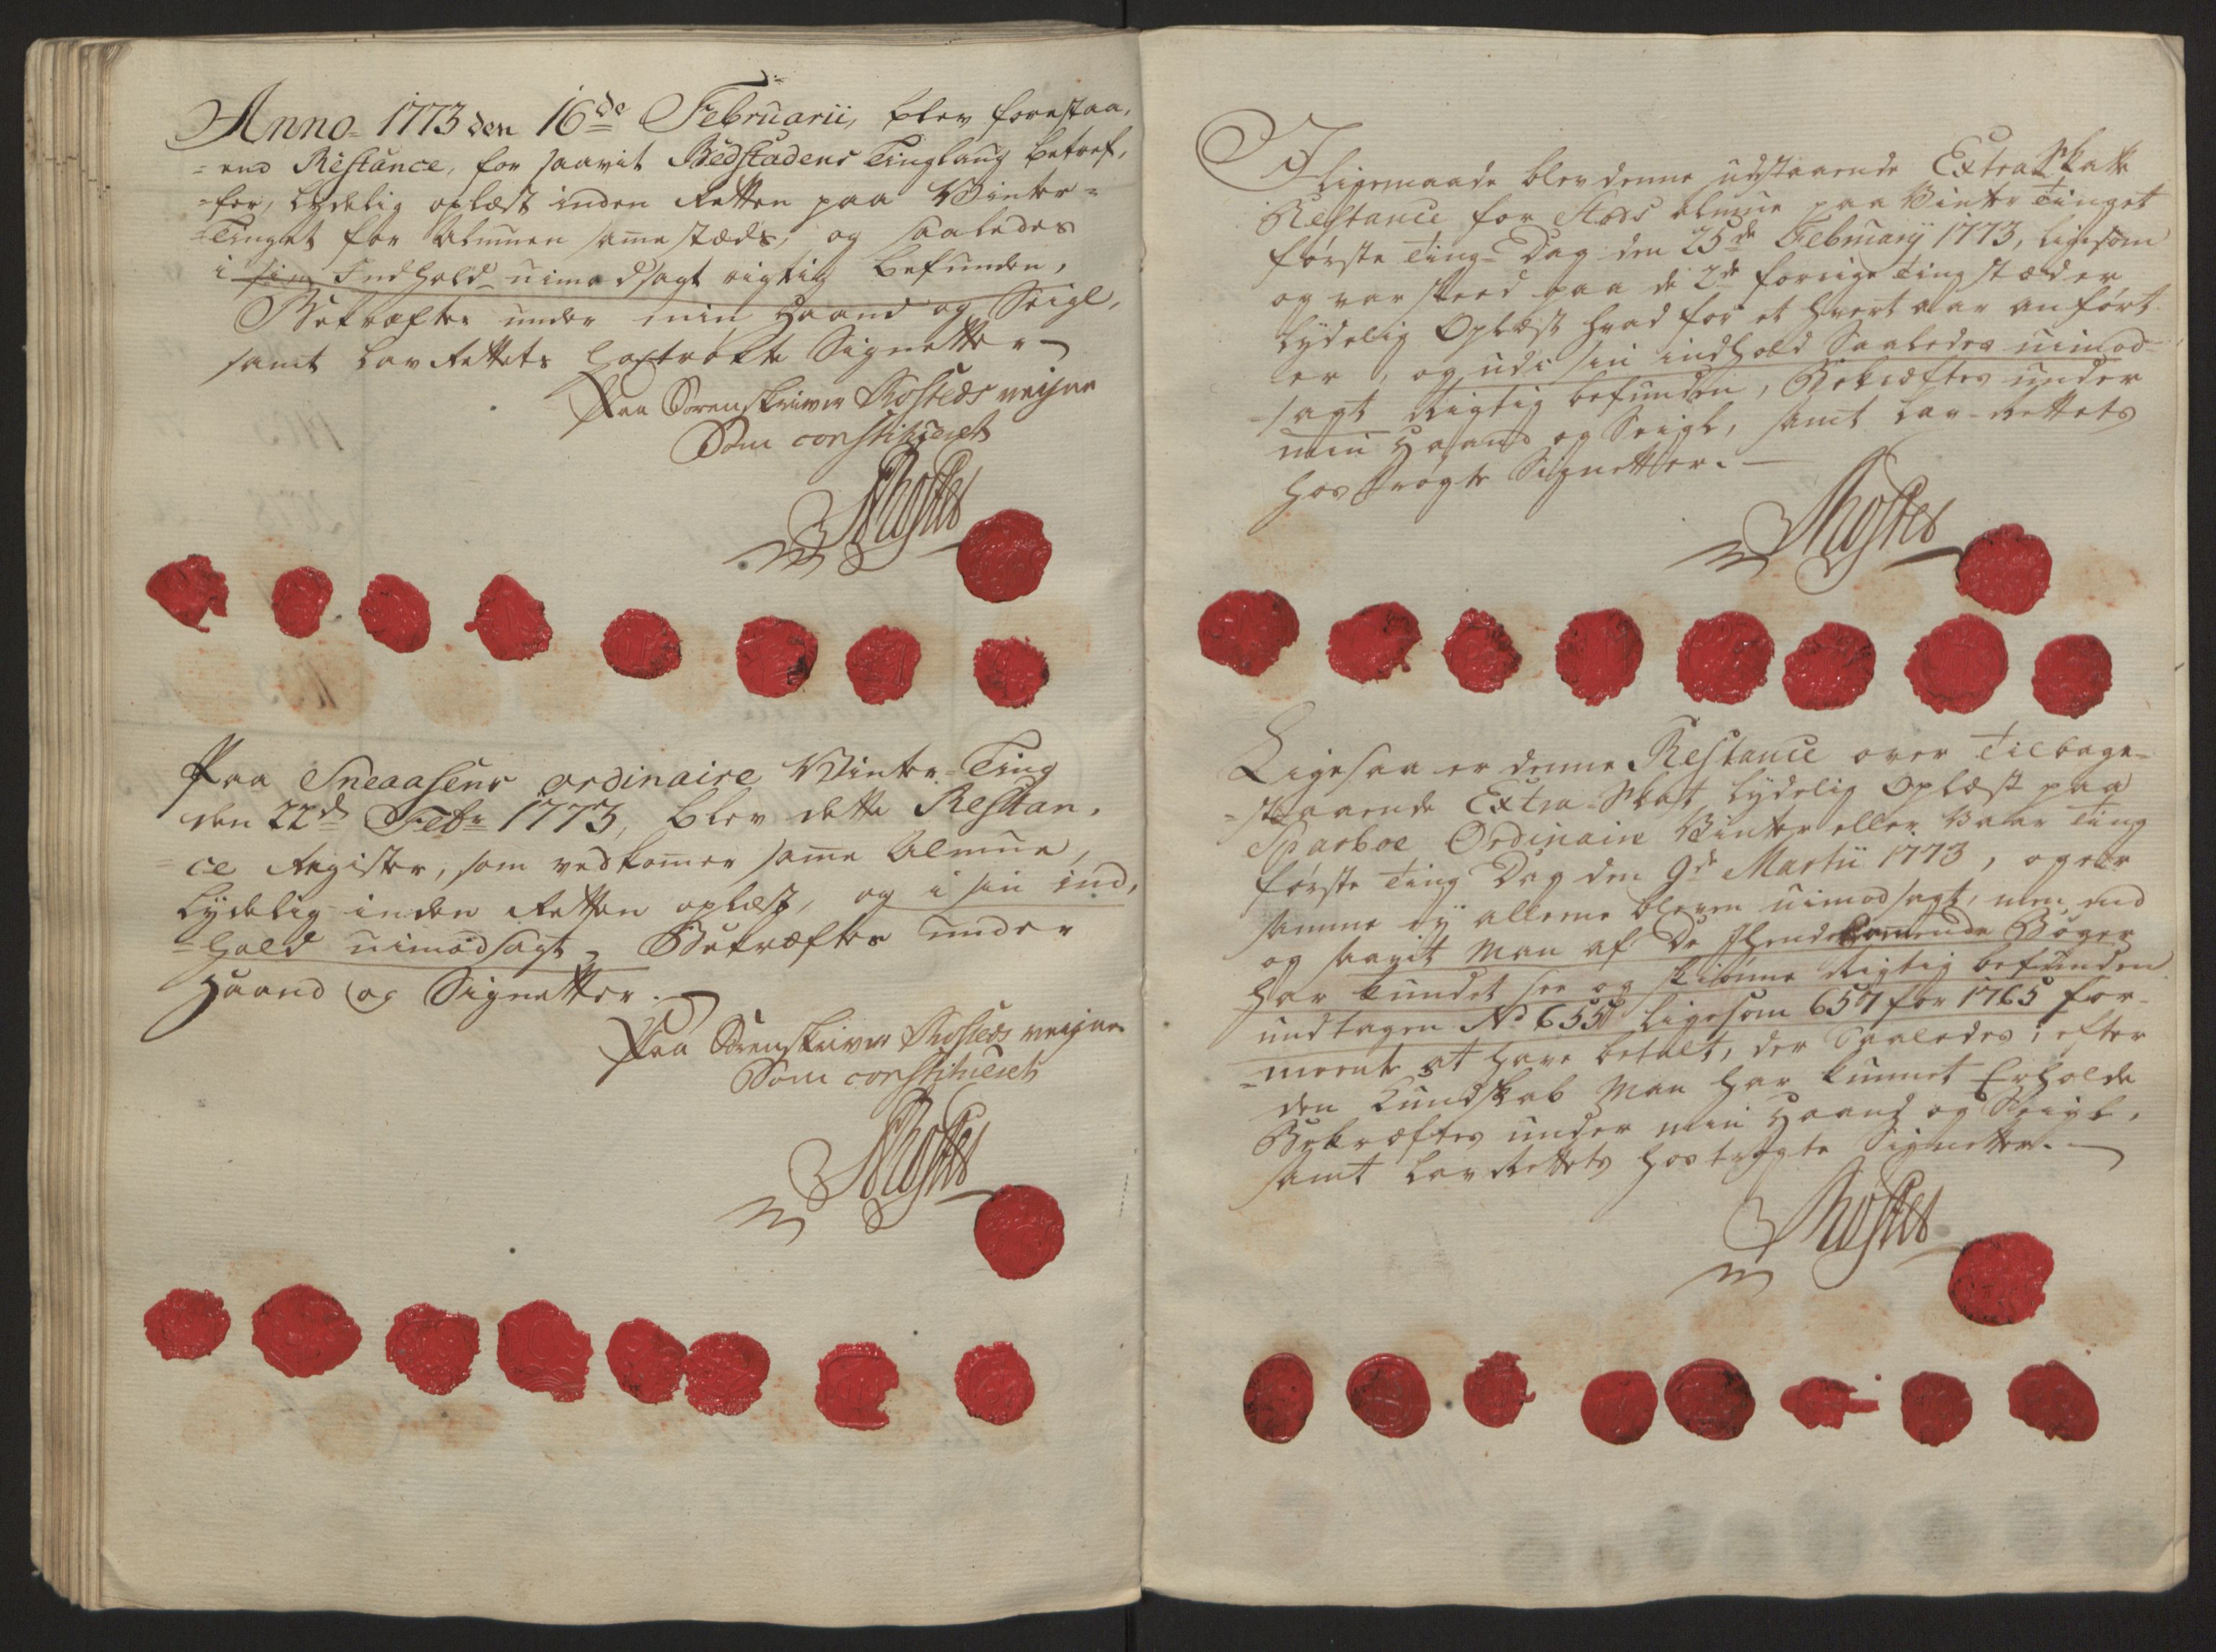 Anno 1773 den 16de Februarii, blev forestaa,
=end Restance, for saavit Bedstadens Tinglaug betref,
=fer, lydelig oplæst inden Retten paa Winter=
Tinget for Almuen samestæds, og saaledes
i sin Indhold uimodsagt rigtig befunden,
Bekræfter under min Haand og Seigl,
samt Lav Rettets hoströkte Signetter
Paa Sorenskriver Rosteds veigne
Som constitueret
Paa Sneaasens ordinaire Winter-Ting
den 22de Febr 1773, blev dette Restan,
=ce Register, som vedkomer same Almue,
lydelig inden Retten oplæst, og i sin ind,
=hold uimodsagt, Bekræfter under
Haand og Signetter.
Paa Sorenskriver Rosteds veigne
Som constitueret
I ligemaade blev denne udstaaende Extra Skatte
Restance for Stods Almue paa Vinter Tinget
første Ting-Dag den 25de Februarij 1773, ligesom
og var skeed paa de 2de forrige Tingstæder
lydelig Oplæst hvad for et hvert aar anført
er, og udi sin indhold Saaledes uimod-
sagt Rigtig befunden, Bekræftes under
min Haand og Seigl, samt Lav-Rettets
hoströgte Signetter.
Ligesaa er denne Restance over Tilbage-
=staaende Extra-Skat lydelig Oplæst paa
Sparboe Ordinaire Vinter eller Vaar Ting
første Ting Dag den 9de Martii 1773, og er
samme ey allene bleven uimodsagt, men end
og saavit Man af De Ihendekomende Bøger
har kundet see og skiönne Rigtig befunden
undtagen No 655 ligesom 657 for 1765 for-
=meente at have betalt, der Saaledes, efter
den Kundskab Man har kunnet Erholde
Bekræftes under min Haand og Seigl,
samt Lav Rettets hoströgte Signetter.